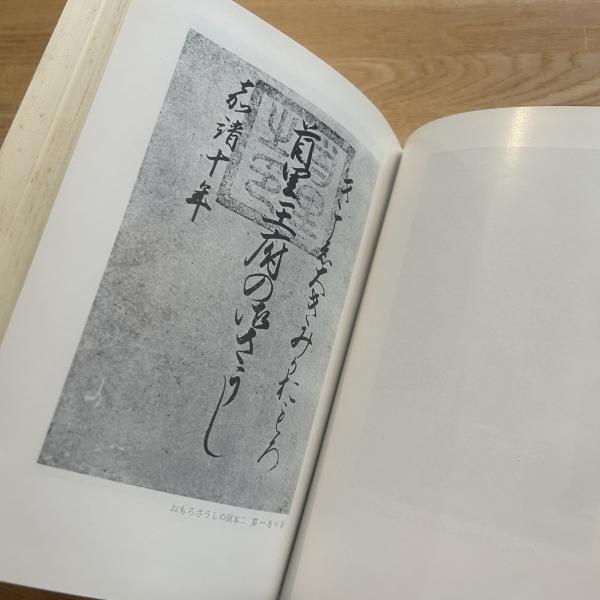 きこゑ大きみかおもろ
首里王府の御さうし
嘉靖十年
おもろさうしの原本二 第一巻の